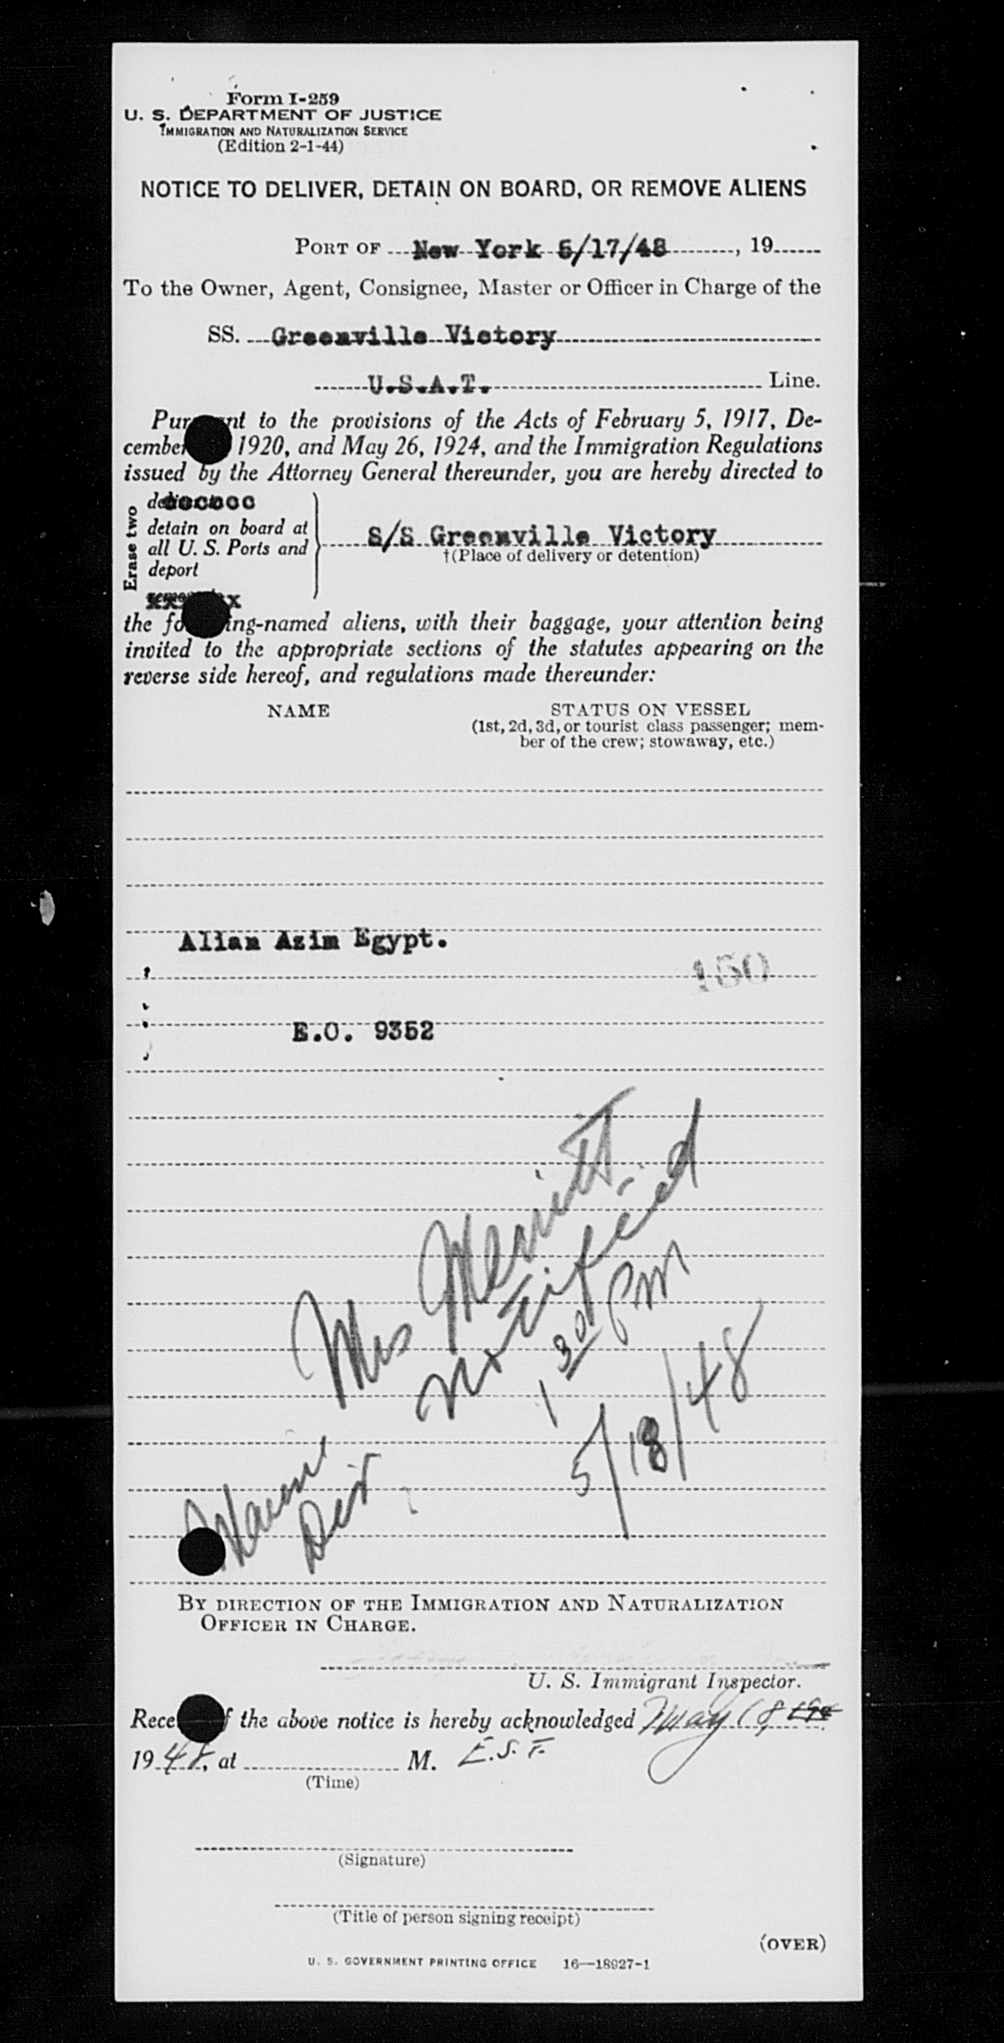 Form I-259
U. S. DEPARTMENT OF JUSTICE
IMMIGRATION AND NATURALIZATION SERVICE
(Edition 2-1-44)
NOTICE TO DELIVER, DETAIN ON BOARD, OR REMOVE ALIENS
PORT OF New York 5/17/48, 19
To the Owner, Agent, Consignee, Master or Officer in Charge of the
SS. Greenville Victory
U.S.A.T. Line.
Pur nt to the provisions of the Acts of February 5, 1917, De-
cember 1920, and May 26, 1924, and the Immigration Regulations
issued by the Attorney General thereunder, you are hereby directed to
Erase two
detain on board at
all U. S. Ports and
deport
S/S Greenville Victory
†(Place of delivery or detention)
the fo ing-named aliens, with their baggage, your attention being
invited to the appropriate sections of the statutes appearing on the
reverse side hereof, and regulations made thereunder:
NAME
STATUS ON VESSEL
(1st, 2d, 3d, or tourist class passenger; mem-
ber of the crew; stowaway, etc.)
Alian Azim Egypt.
150
E.O. 9352
Mrs Merritt
Notified
1 30 PM
5/18/48
Marine
Div
BY DIRECTION OF THE IMMIGRATION AND NATURALIZATION
OFFICER IN CHARGE.
U. S. Immigrant Inspector.
Rece f the above notice is hereby acknowledged May 18,
1948, at M. E.S.F.
(Time)
(Signature)
(Title of person signing receipt)
(OVER)
U. S. GOVERNMENT PRINTING OFFICE 16—18927-1